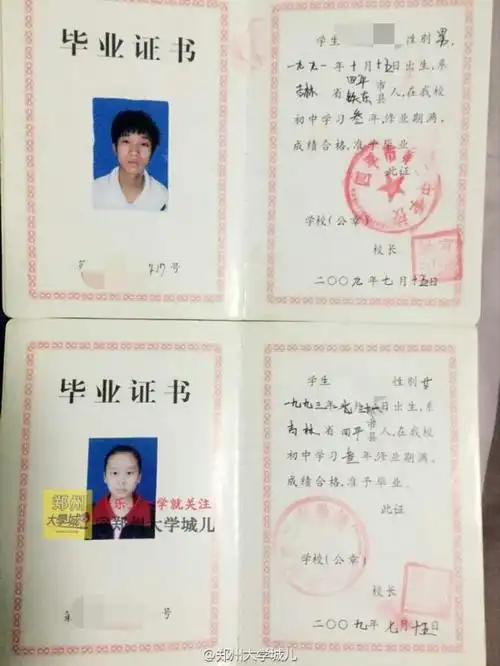 毕业证书
217号
学生 性别男,
一九九一年十月十五日出生,系
吉林省四平市铁东县人,在我校
初中学习叁年,修业期满,
成绩合格,准予毕业
此证
学校(公章)
校长
二〇〇九年七月十五日
毕业证书
郑州
大學城
乐 学就关注
郑州大学城儿
第 号
学生 性别女
一九九三年 日出生,系
吉林省四平市县人,在我校
初中学习叁年,修业期满,
成绩合格,准予毕业。
此证
学校(公章)
校长
二〇〇九年七月十五日
@郑州大学城儿